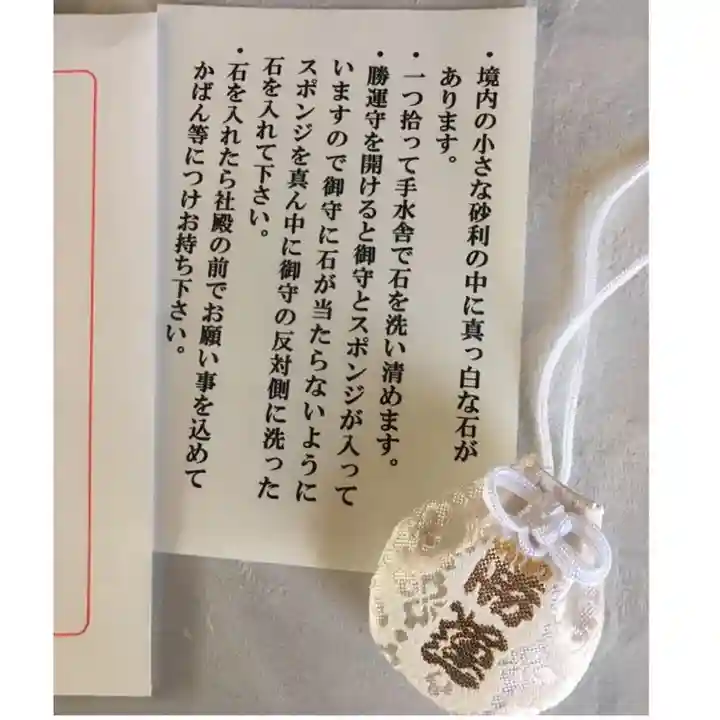 ・境内の小さな砂利の中に真っ白な石が
あります。
・一つ拾って手水舎で石を洗い清めます。
・勝運守を開けると御守とスポンジが入って
いますので御守に石が当たらないように
スポンジを真ん中に御守の反対側に洗った
石を入れて下さい。
・石を入れたら社殿の前でお願い事を込めて
かばん等につけお持ち下さい。